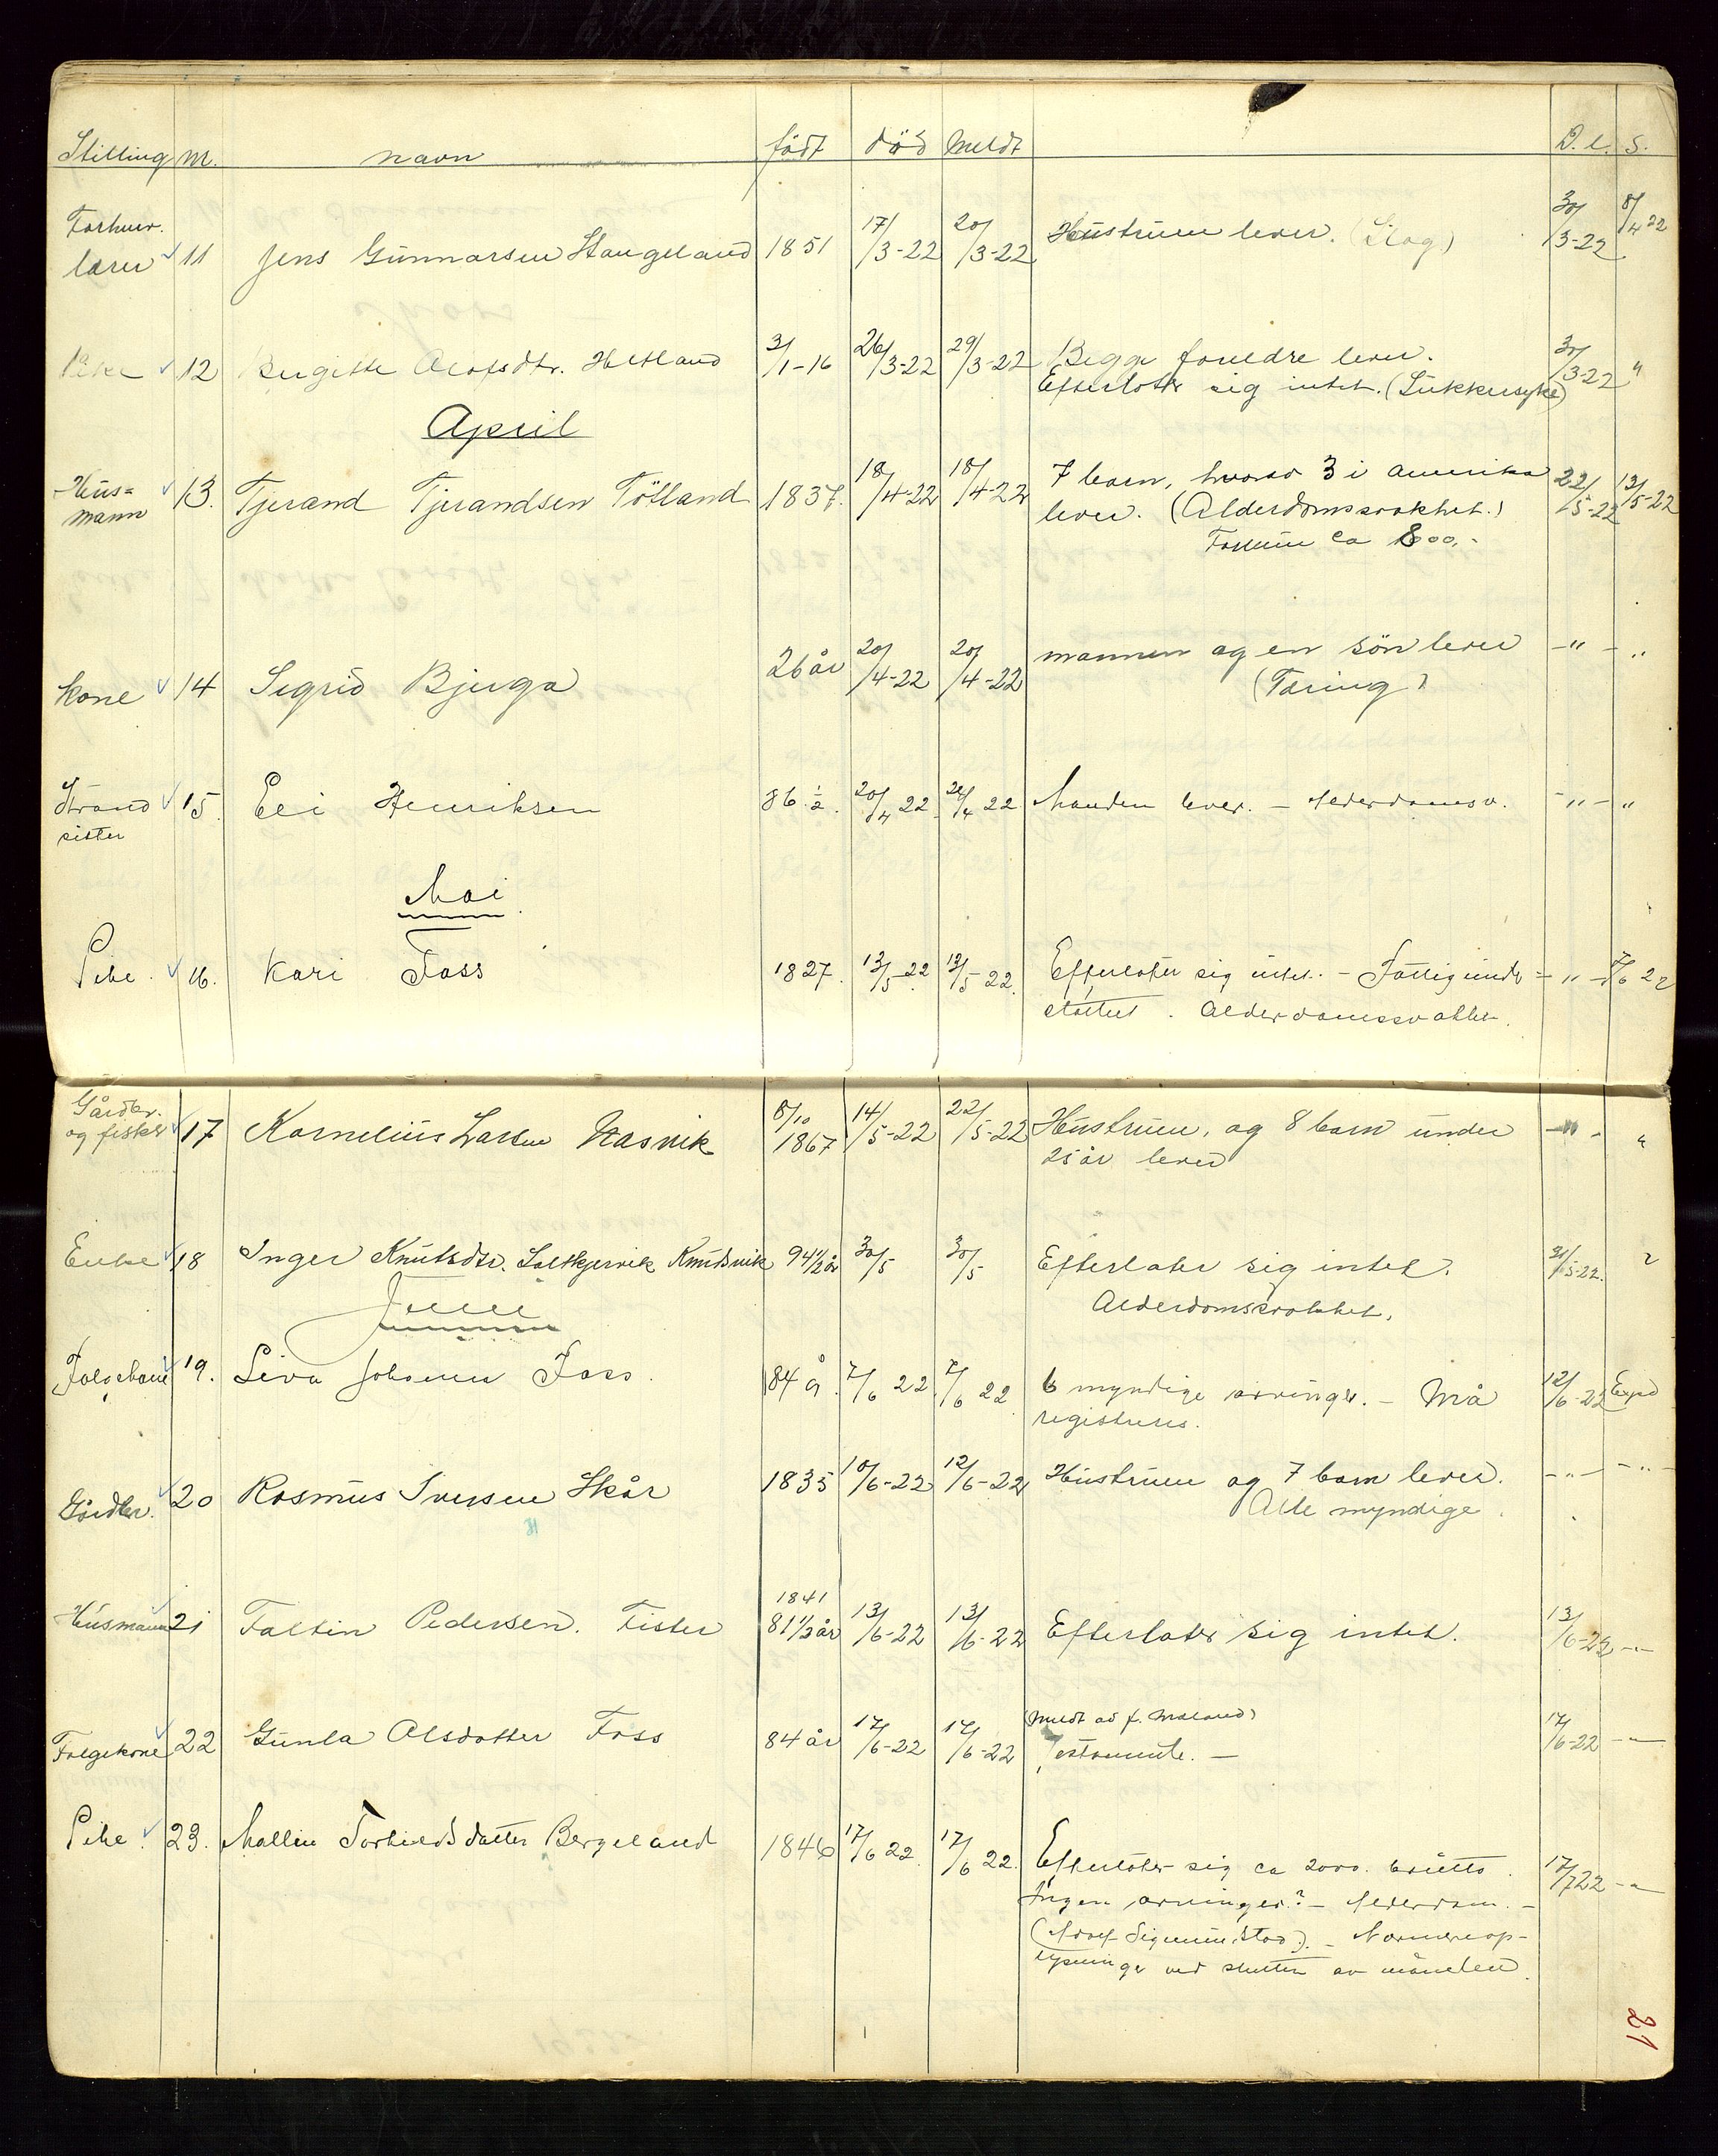 Stilling nr. navn født död Meldt D. l. S.
Forhenv.
lærer 11 Jens Gunnarsen Stangeland 1851 17/3-22 20/3-22 Hustruen lever. (Slag) 30/3-22 8/4 22
Pike 12 Birgitte Olofsdtr. Hetland 3/1-16 26/3-22 29/3-22 Begge foreldre lever. 30/3-22 "
Efterlater sig intet. (Sukkersyke)
April
Hus=
mann 13. Tjerand Tjerandsen Tötland 1837. 18/4-22 18/4-22 7 barn, hvorav 3 i Amerika 22/5-22 13/5-22
lever. (Alderdomssvakhet.)
Formue ca 800,-
kone 14 Sigrid Bjerga 26 år 20/4-22 20/4-22 mannen og en sön lever - " - "
(Tæring)
Strand
sitter 15. Eli Henriksen 86 1/2. 20/4 22 24/4 22 Manden lever. - Alderdomssv. - " - "
Mai.
Pike. 16. Kari Foss 1827. 13/5-22 13/5 22. Efterlater sig intet. - Fattigunder= - " - 7/6 22
støttet. Alderdomssvakhet.
Gårdbr.
og fisker 17 Kornelius Larsen Nasvik 8/10 1867 14/5-22 22/5-22 Hustruen, og 8 barn under - " - "
25 år lever
Enke 18 Inger Knutsdtr. Saltkjervik Knutsvik 94 1/2 år 30/5 30/5 Efterlater sig intet. 31/5-22.
Alderdomssvakhet.
Juni
Folgekone 19. Siva Johnsen Foss. 84 å. 7/6 22. 7/6 22 6 myndige arvinger. - Må 12/6-22 Exp
registreres.
Gårdbr. 20 Rasmus Iversen Skår 1835 10/6-22 12/6-22 Hustruen og 7 barn lever. - " - - " -
Alle myndige.
Husmann 21 Faltin Pedersen. Fister 1841 81 1/3 år 13/6-22 13/6-22 Efterlater sig intet. 13/6-22 - " -
(Meldt av f. Mæland)
Folgekone 22 Gunla Olsdatter Foss 84 år 17/6-22 17/6-22 Testamente. - 17/6-22 - " -
Pike. 23. Mallin Torkildsdatter Bergeland 1846 17/6 22. 17/6 22. Efterlater sig ca 2000. brutto. 17/7 22 - " -
Ingen arvinger? - Alderdom. -
(Adolf Sigmundstad). - Nærmere op-
lysninger ved slutten av måneden.
21